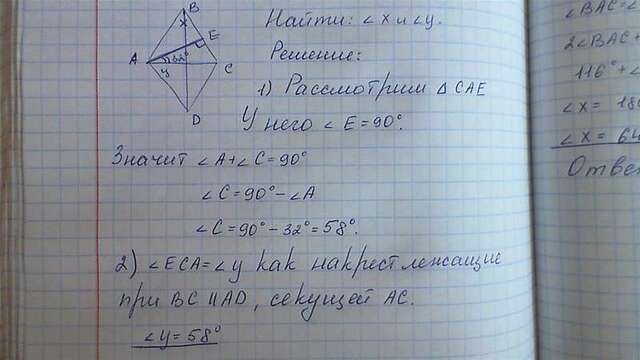 B
x
E
A
32°
y
C
D
Найти: ∠x и ∠y.
Решение:
1) Рассмотрим △ CAE
У него ∠E = 90°.
Значит ∠A+∠C=90°
∠C=90°-∠A
∠C=90°-32°=58°.
2) ∠ECA=∠y как накрест лежащие
при BC || AD, секущей AC.
∠y = 58°
∠BAC =
2∠BAC +
116° + ∠
∠x = 18
∠x = 64
Ответ